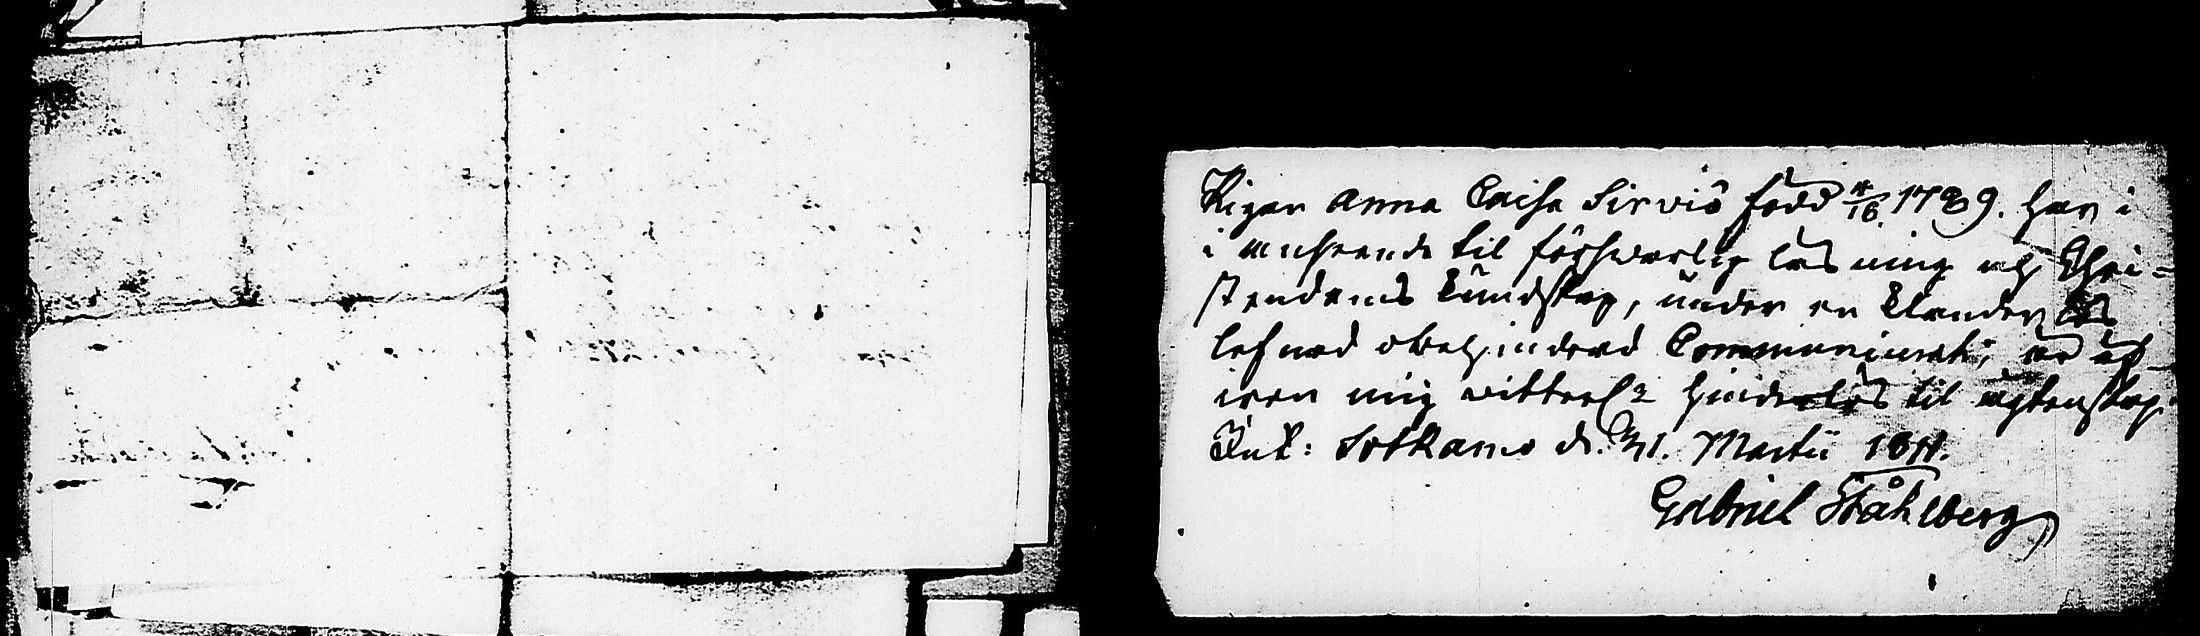 Pigan Anna Caisa Sirviö född 4/16 1789. har i
i anseende til försvarlig läsning och Chri-
stendoms kundskap, under en klander lös
lefnad obehindrad Communicerat; är ock
även mig vitterl. hinderlös til ägtenskap.
Int: Sotkamo d. 31. Martii 1811.
Gabriel Ståhlberg